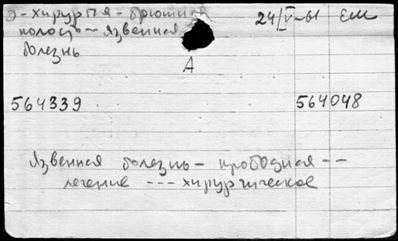 Э-хирургия-брюшная 24/V-61 ЕМ
полость--язвенная
болезнь
А
564339 564048
Язвенная болезнь- прободная--
лечение ---хирургическое